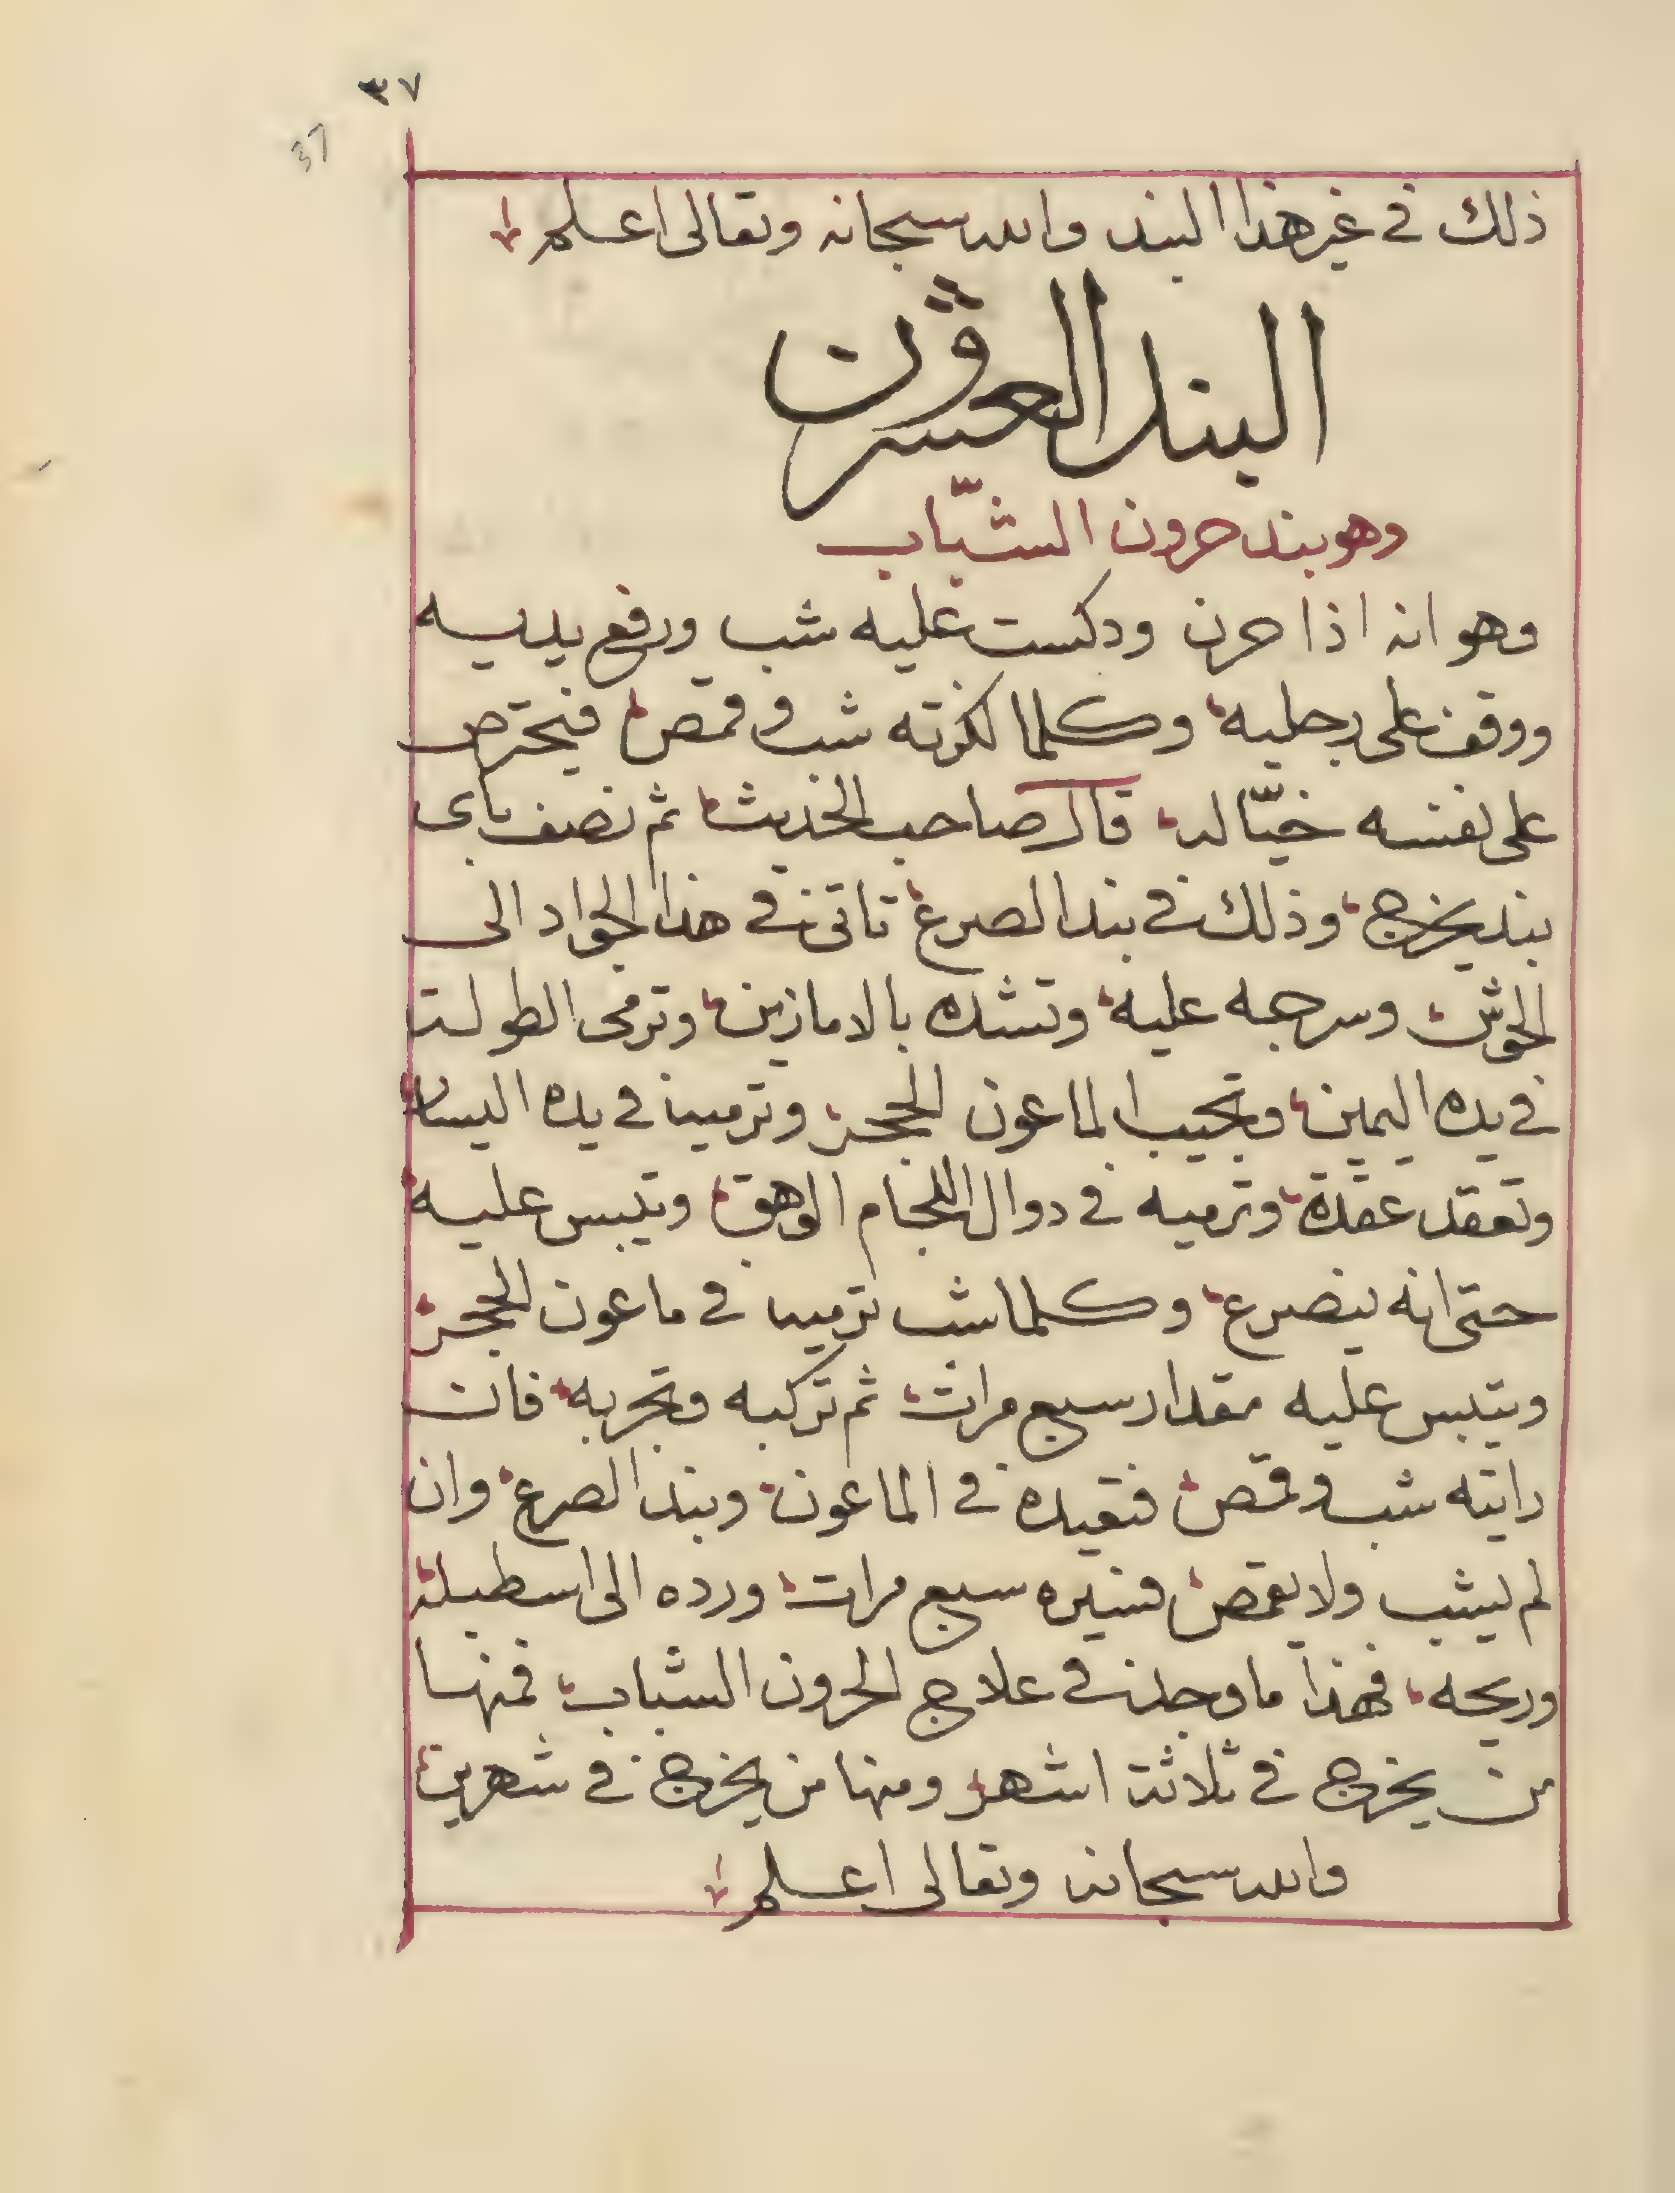 ٣٧
37
ذلك في غير هذا البند والله سبحانه وتعالى اعلم
البند العشرون
وهو بند حرون الشبّاب
وهو انه اذا حرن ودكست عليه شب ورفع يديه
ووقف على رجليه وكلما لكزته شب وقمص فيحترص
على نفسه خيّاله قال صاحب الحديث ثم نصف باى
بند يخرج وذلك في بند الصرع تاتى في هذا الجواد الى
الحوش وسرجه عليه وتشده بالامازين وترمى الطولت
في يده اليمين وتجيب الماعون الحجر وترميه في يده اليسار
وتعقد عقدة وترميه في دوال اللجام الوهق وتيبس عليه
حتى انه ينصرع وكلما شب ترميه في ماعون الحجر
وتيبس عليه مقدار سبع مرات ثم تركبه وتجربه فان
رايته شب وقمص فتعيده في الماعون وبند الصرع وان
لم يشب ولا يقمص فسيره سبع مرات ورده الى اسطبله
وريحه فهذا ما وجد في علاج الحرون الشباب فمنها
من يخرج في ثلاثة اشهر ومنها من يخرج في شهرين
والله سبحانه وتعالى اعلم